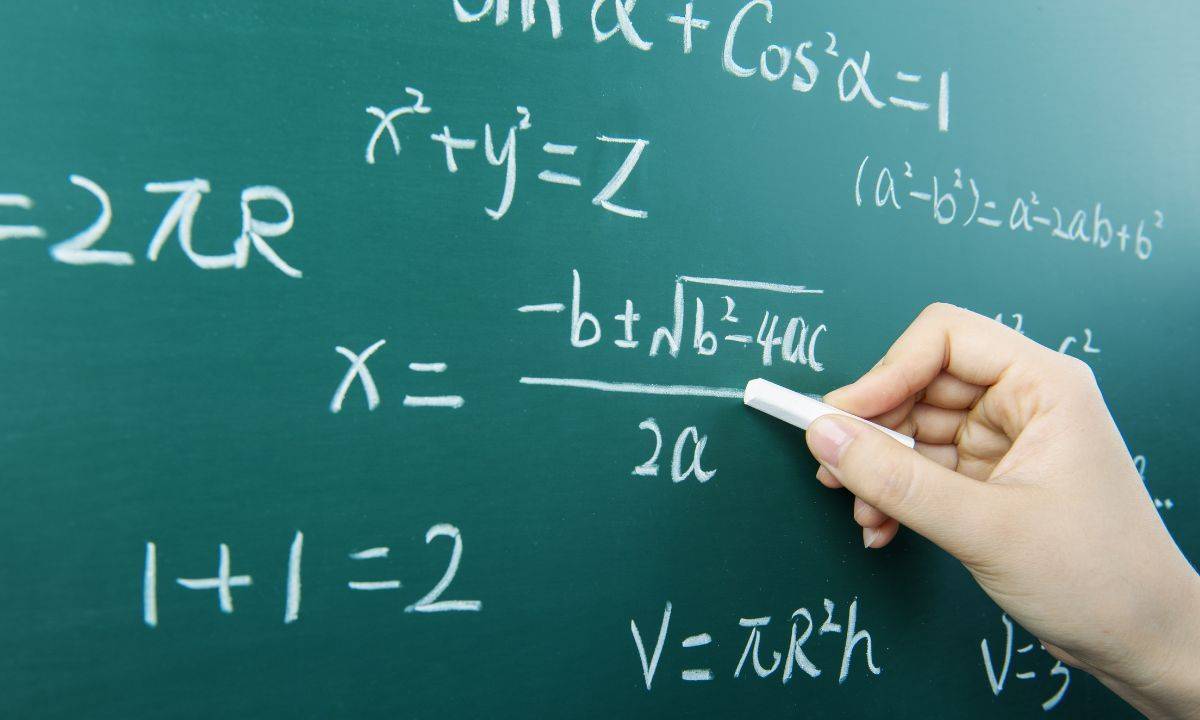 sin α + Cos²α = 1
x² + y² = Z
(a² - b²) = a² - 2ab + b²
= 2πR
x = -b ± √b² - 4ac
2a
1 + 1 = 2
V = πR²h
V =